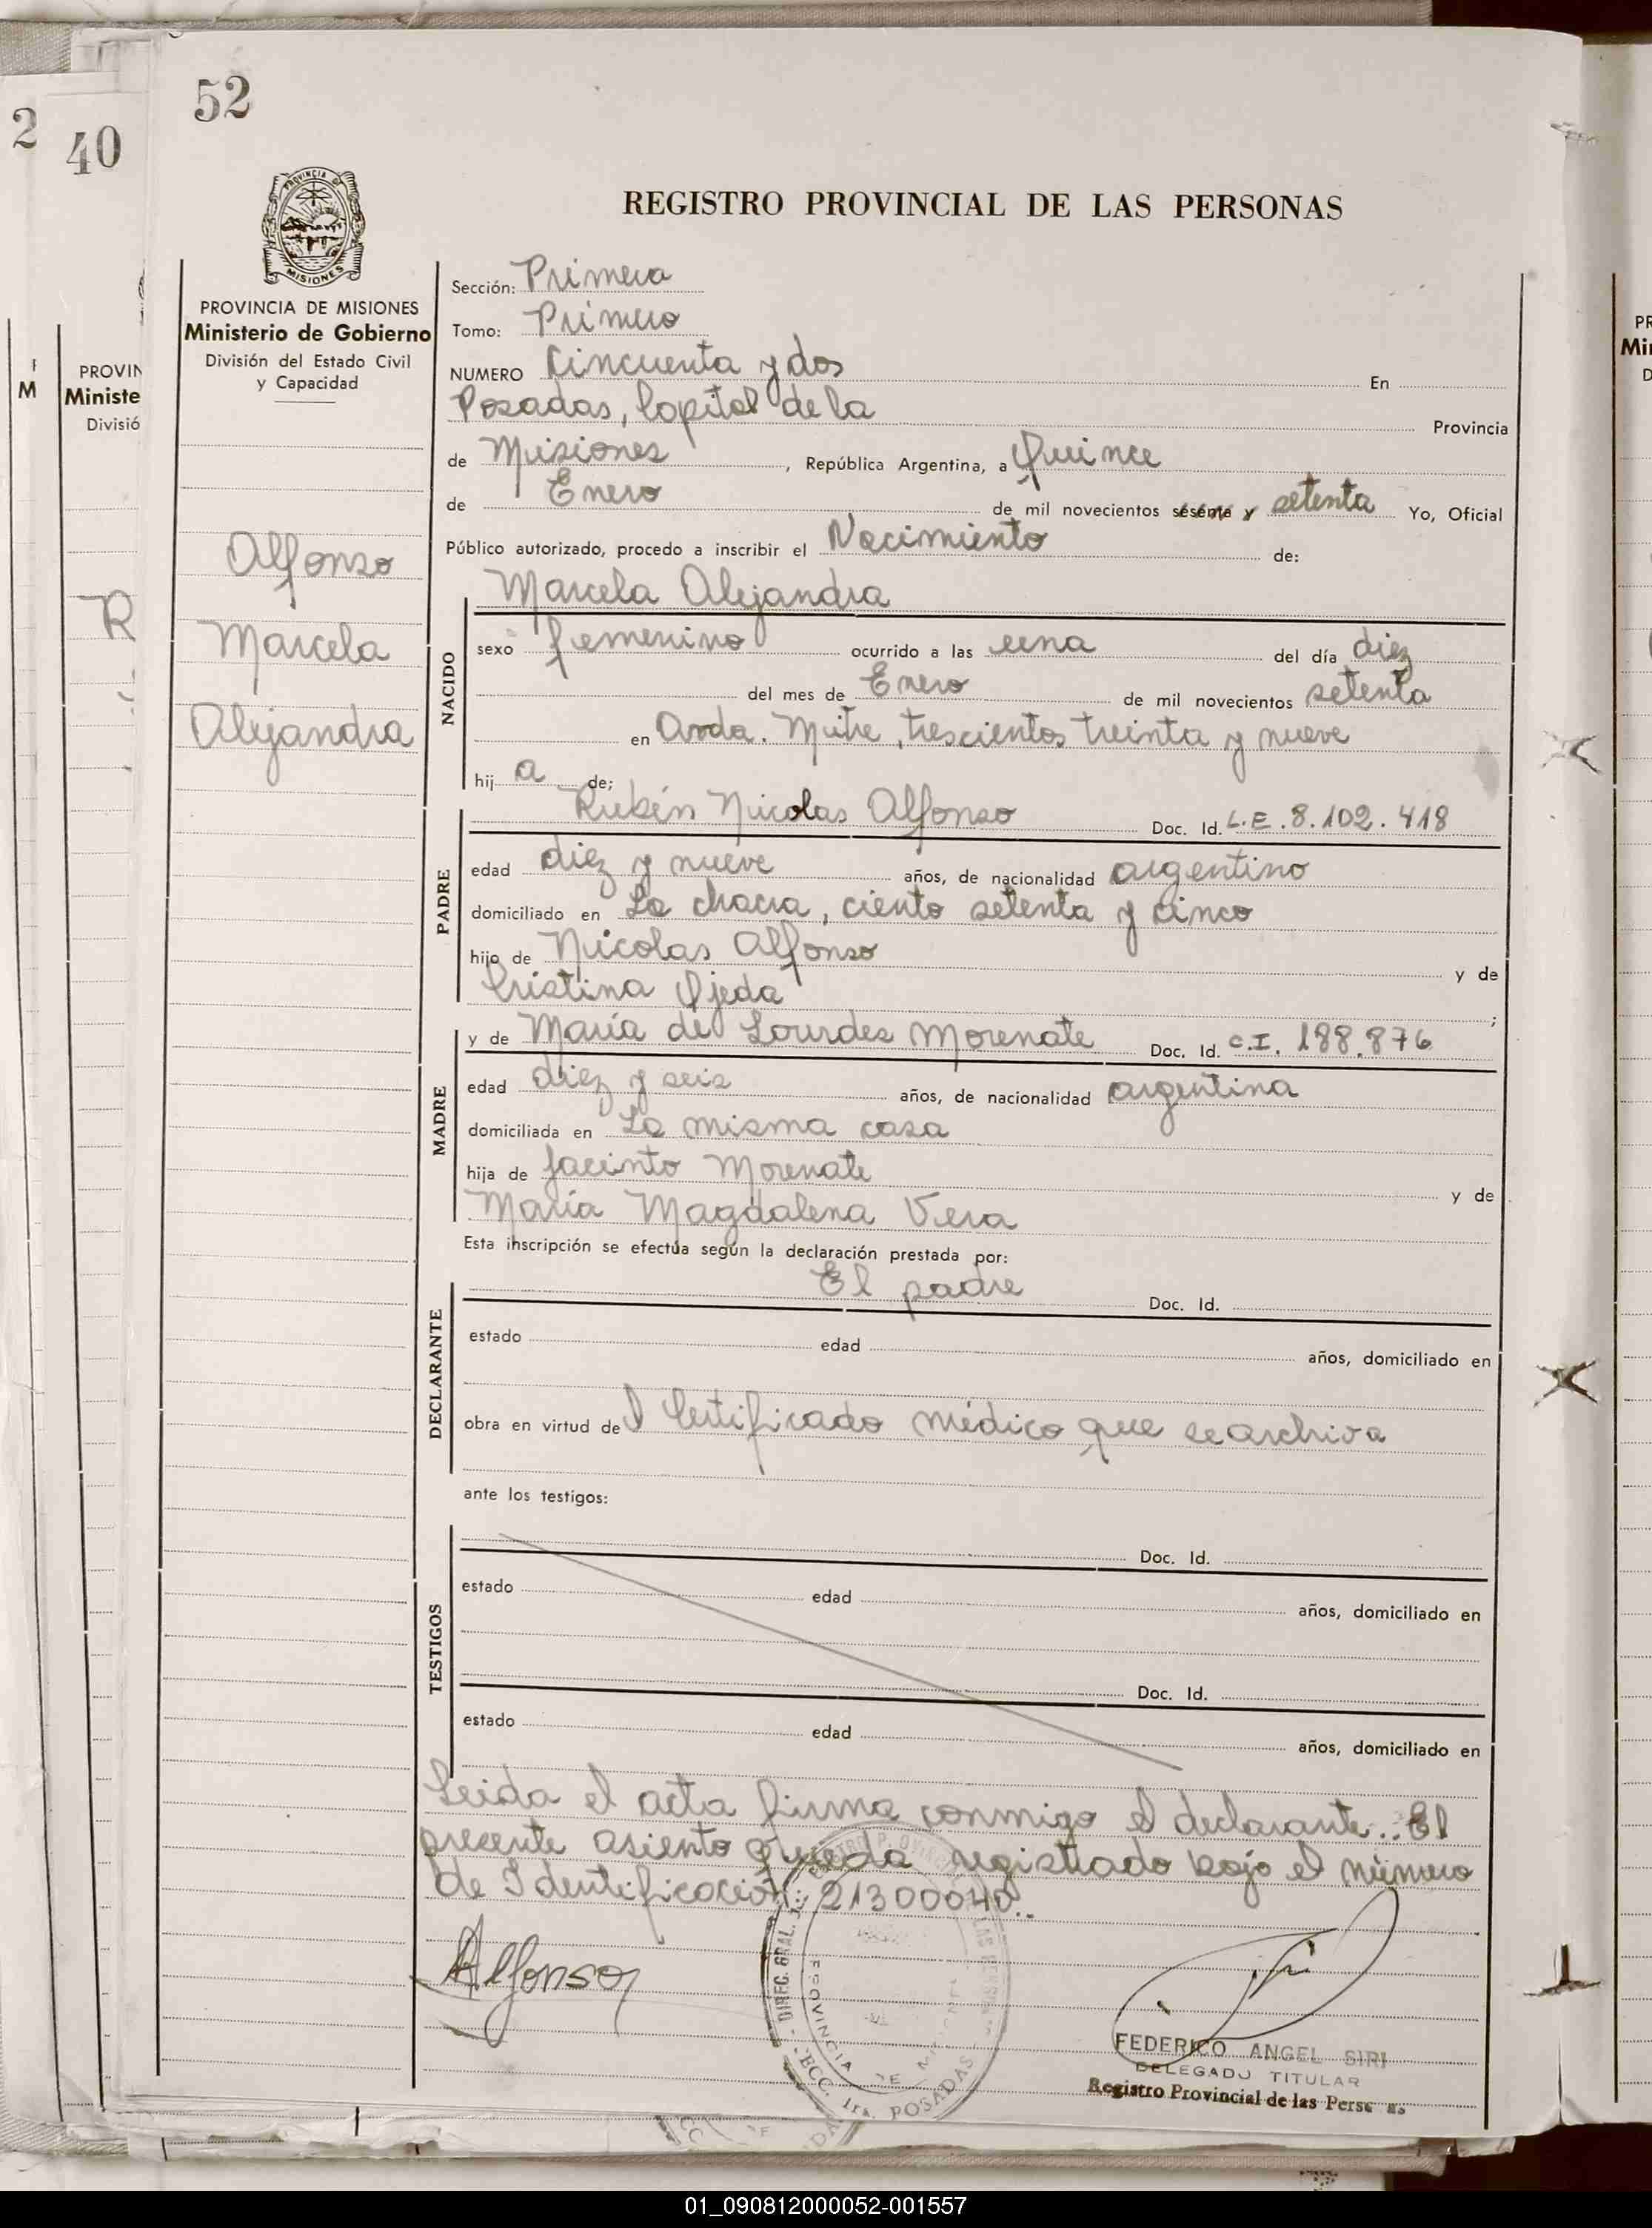 52
2
40
PROVINCIA DE
MISIONES
REGISTRO PROVINCIAL DE LAS PERSONAS
PROVINCIA DE MISIONES
Ministerio de Gobierno
División del Estado Civil
y Capacidad
PROVIN
Ministe
Divisió
M
R
Alfonso
Marcela
Alejandra
Sección: Primera
Tomo: Primero
NUMERO Cincuenta y dos En
Posadas, Capital de la Provincia
de Misiones, República Argentina, a Quince
de Enero de mil novecientos sesenta y setenta Yo, Oficial
Público autorizado, procedo a inscribir el Nacimiento de:
NACIDO
Marcela Alejandra
sexo femenino ocurrido a las una del día diez
del mes de Enero de mil novecientos setenta
en Avda. Mitre, trescientos treinta y nueve
hij a de;
PADRE
Rubén Nicolas Alfonso Doc. Id. L.E. 8.102.418
edad diez y nueve años, de nacionalidad argentino
domiciliado en La chacra, ciento setenta y cinco
hijo de Nicolas Alfonso y de
Cristina Ojeda ;
MADRE
y de María de Lourdes Morenate Doc. Id. C.I. 188.876
edad diez y seis años, de nacionalidad argentina
domiciliada en La misma casa
hija de Jacinto Morenate y de
María Magdalena Vera
Esta inscripción se efectúa según la declaración prestada por:
DECLARANTE
El padre Doc. Id.
estado edad años, domiciliado en
obra en virtud del Certificado médico que se archiva
ante los testigos:
TESTIGOS
Doc. Id.
estado edad años, domiciliado en
Doc. Id.
estado edad años, domiciliado en
Leida el acta firma conmigo el declarante.. El
presente asiento queda registrado bajo el número
de Identificación: 21300040..
Alfonso
DIREC. GRAL.
PROVINCIA DE
SECC. 1ra. POSADAS
FEDERICO ANGEL SIRI
DELEGADO TITULAR
Registro Provincial de las Personas
01_090812000052-001557